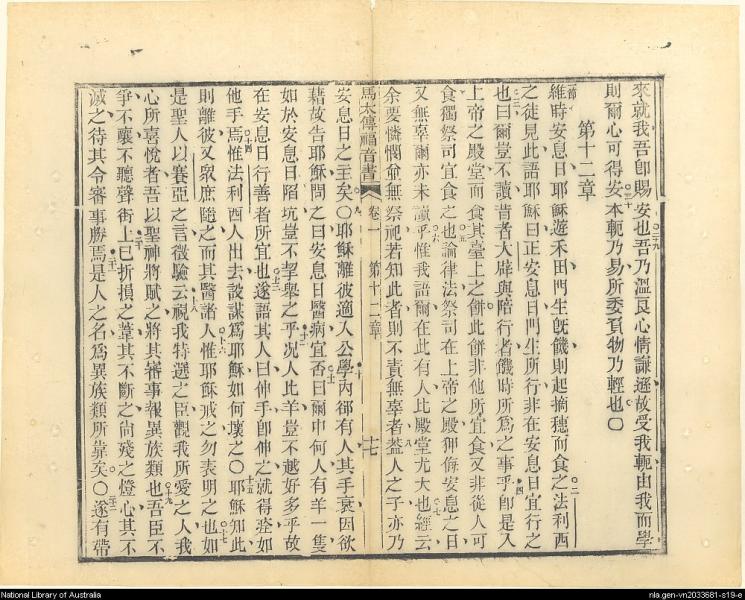 來就我吾卽賜安也吾乃溫良心情謙遜故受我軛由我而學
則爾心可得安本軛乃易所委負物乃輕也〇
第十二章
維時安息日耶穌遊禾田門生旣饑則起摘穗而食之法利西
之徒見此語耶穌曰正安息日門生所行非在安息日宜行之
也曰爾豈不讀昔者大辟與陪行者饑時所爲之事乎卽是入
上帝之殿堂而食其臺上之餅此餅非他所宜食又非從人可
食獨祭司宜食之也論律法祭司在上帝之殿弗脩安息之日
又無辜爾亦未讀乎惟我語爾在此有人比殿堂尤大也經云
余要憐憫侖無祭祀若知此者則不責無辜者蓋人之子亦乃
馬太傳福音書 卷一 第十二章 十七
安息日之主矣〇耶穌離彼適入公學內卻有人其手衰因欲
藉故告耶穌問之曰安息日醫病宜否曰爾中何人有羊一隻
如於安息日陷坑豈不挈舉之乎况人比羊豈不越好多乎故
在安息日行善者所宜也遂語其人曰伸手卽伸之就得痊如
他手焉惟法利西人出去設謀爲耶穌如何壞之〇耶穌知此
則離彼又眾庶隨之而其醫諸人惟耶穌戒之勿表明之也如
是聖人以賽亞之言徵驗云視我特選之臣觀我所愛之人我
心所喜悅者吾以聖神將賦之將其審事報異族類也吾臣不
爭不嚷不聽聲街上已折損之葦其不斷之尙殘之燈心其不
滅之待其令審事勝焉是人之名爲異族類所靠矣〇遂有帶
National Library of Australia
nla.gen-vn2033681-s19-e